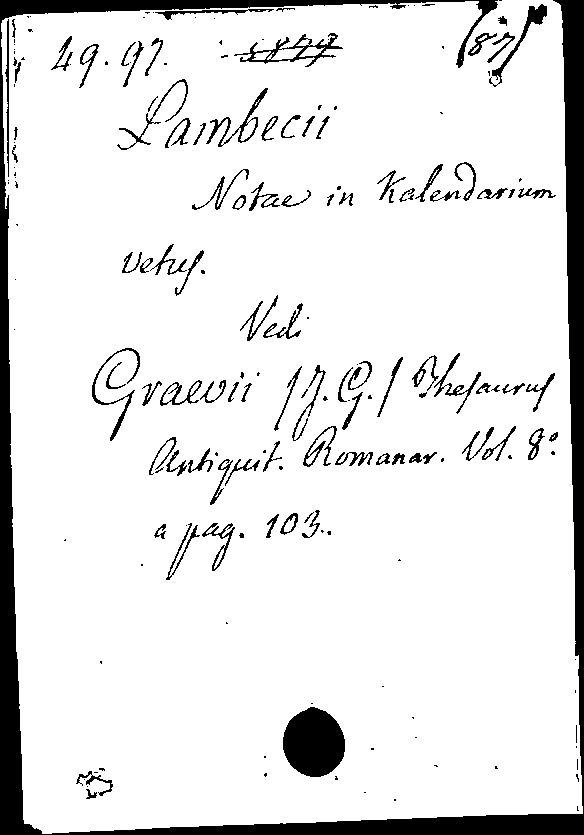 49.97. 5879 (87)
Lambecii
Notae in Kalendarium
vetus.
Vedi
Graevii (J. G.) Thesaurus
Antiquit. Romanar. Vol. 8º
a pag. 103.